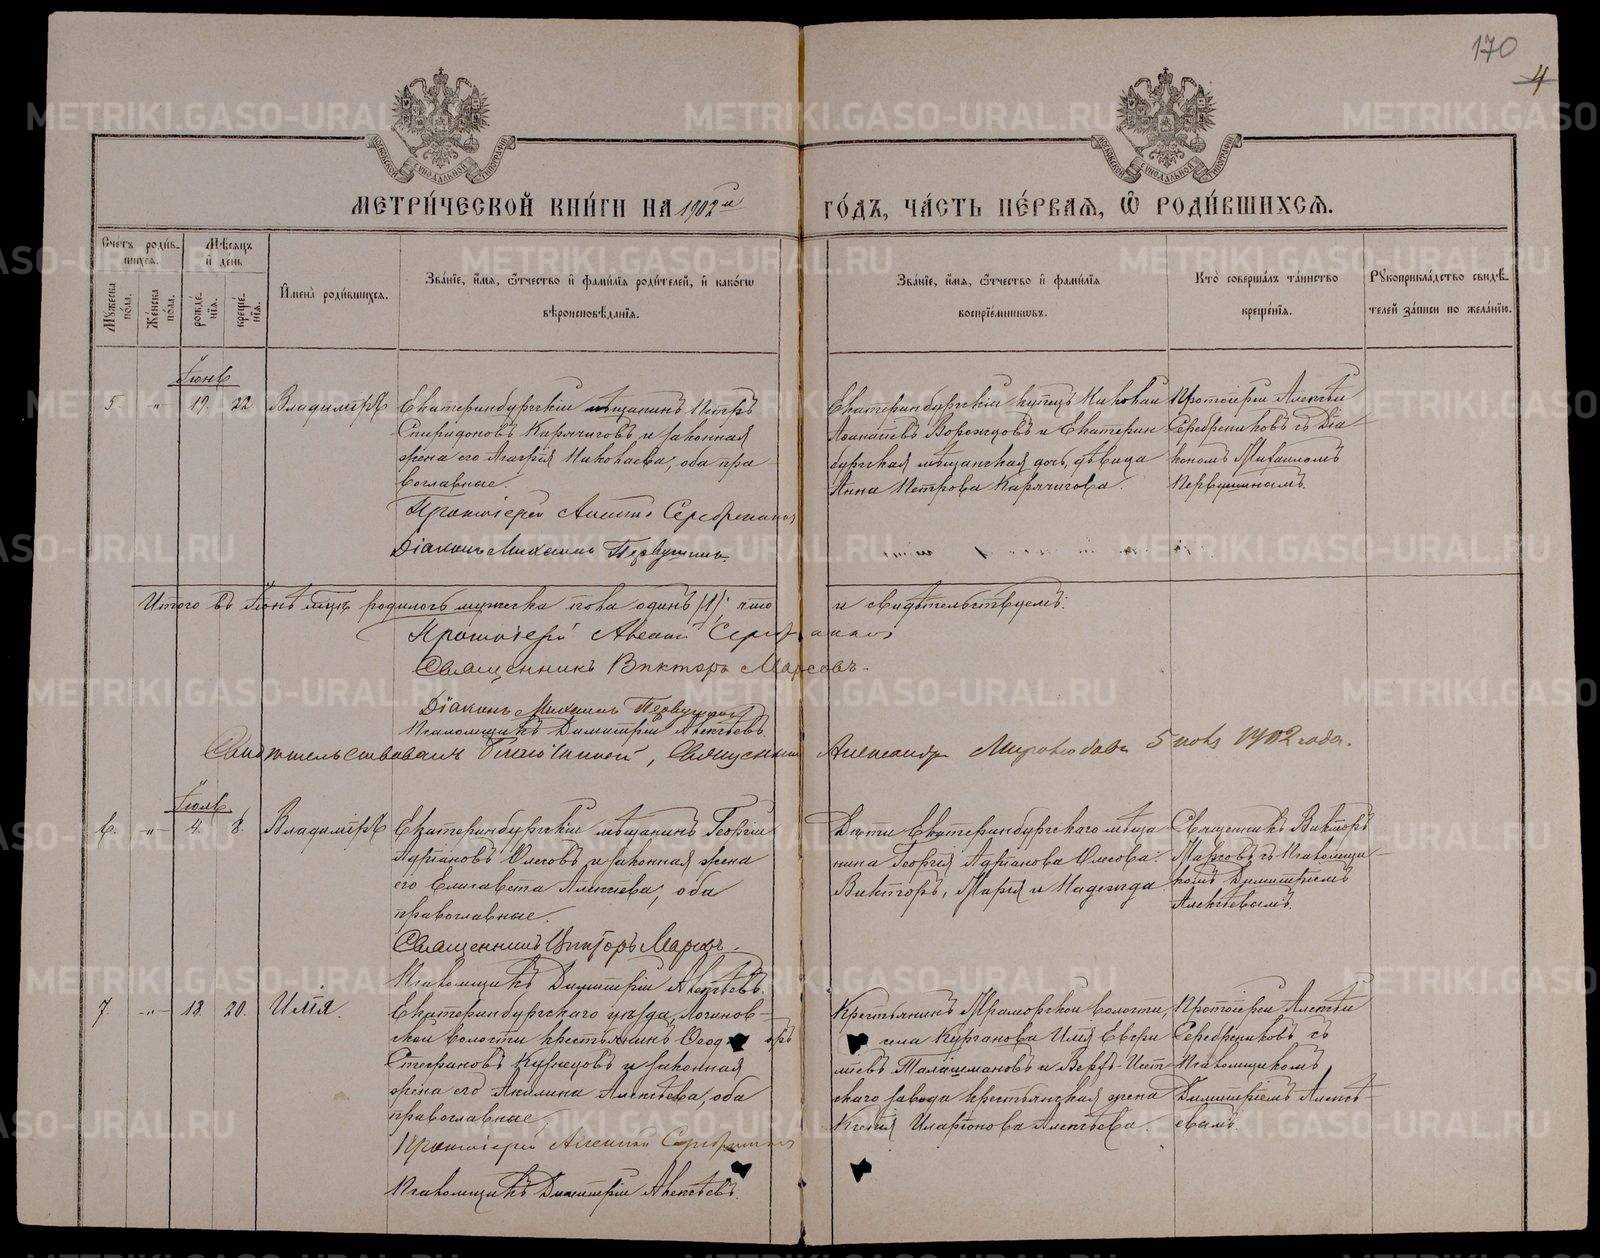 170
4
МЕТРИ́ЧЕСКОЙ КНИ́ГИ НА 1902й ГО́ДЪ, ЧА́СТЬ ПЕ́РВАЯ, Ѽ РОДИ́ВШИХСЯ.
Сче́тъ роди́вшихся.
Мꙋ́жеска по́ла.
Же́нска по́ла.
Мѣ́сяцъ и҆ де́нь
рожде́нїя.
креще́нїя.
И҆мена̀ роди́вшихся.
Зва́нїе, и҆́мя, ѻ҆́тчество и҆ фами́лїя роди́телей, и҆ како́гѡ
вѣроисповѣ́данїя.
Зва́нїе, и҆́мя, ѻ҆́тчество и҆ фами́лїя
воспрїе́мникѡвъ.
Кто̀ соверша́лъ та́инство
креще́нїя.
Рꙋкоприкла́дство свидѣ́-
телей за́писи по жела́нїю.
Іюнь
5. " 19. 22. Владиміръ
Екатеринбургскій мѣщанинъ Петръ
Спиридоновъ Карячиговъ и законная
жена его Агафія Николаева, оба пра-
вославные.
Протоіерей Алексій Серебренниковъ
Діаконъ Михаилъ Первушинъ.
Екатеринбургскій купецъ Николай
Аѳанасіевъ Ворожцовъ и Екатерин-
бургская мѣщанская дочь, дѣвица
Анна Петрова Карячигова.
Протоіерей Алексѣй
Серебренниковъ съ Діа-
кономъ Михаиломъ
Первушинымъ.
Итого въ Іюнѣ мцѣ родилось мужеска пола одинъ /1/: что и свидѣтельствуемъ:
Протоіерей Алексій Серебренниковъ
Священникъ Викторъ Марсовъ.
Діаконъ Михаилъ Первушинъ
Псаломщикъ Димитрій Алексѣевъ.
Свидѣтельствовалъ Благочинный, Священникъ Александръ Миролюбовъ 5 1902 года.
Іюль
6. " 4. 8. Владиміръ
Екатеринбургскій мѣщанинъ Георгій
Адріановъ Олесовъ и законная жена
его Елисавета Алексѣева, оба
православные.
Священникъ Викторъ Марсовъ.
Псаломщикъ Димитрій Алексѣевъ.
Дѣти Екатеринбургскаго мѣща-
нина Георгія Адріанова Олесова:
Викторъ, Марія и Надежда
Священникъ Викторъ
Марсовъ съ Псаломщи-
комъ Димитріемъ
Алексѣевымъ.
7. " 13. 20. Илія.
Екатеринбургскаго уѣзда, Логинов-
ской волости крестьянинъ Ѳеодоръ
Стефановъ Кузнецовъ и законная
жена его Акилина Алексѣева, оба
православные.
Протоіерей Алексій Серебренниковъ
Псаломщикъ Димитрій Алексѣевъ.
Крестьянинъ Мраморской волости,
села Курганова Илія
Талашмановъ и Верхъ-Исет-
скаго завода крестьянская жена
Ксенія Иларіонова Алексѣева.
Протоіерей Алексѣй
Серебренниковъ съ
Псаломщикомъ
Димитріемъ Алексѣ-
евымъ.
METRIKI.GASO-URAL.RU